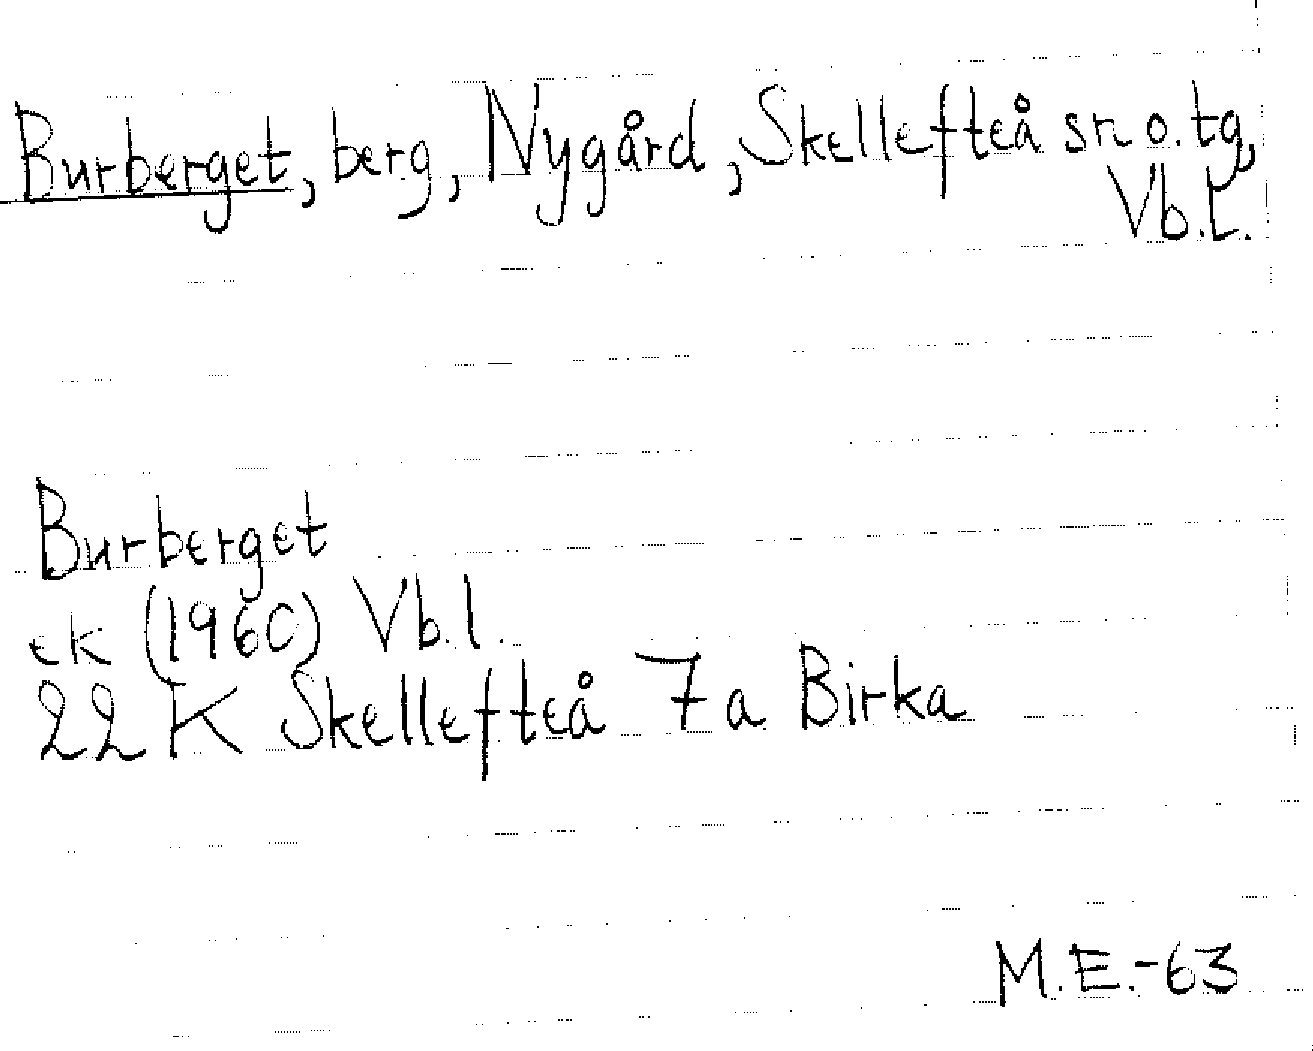 Burberget, berg, Nygård, Skellefteå sn o. tg,
Vb.l.
Burberget
ek (1960) Vb.l.
22 K Skellefteå 7a Birka
M.E.-63